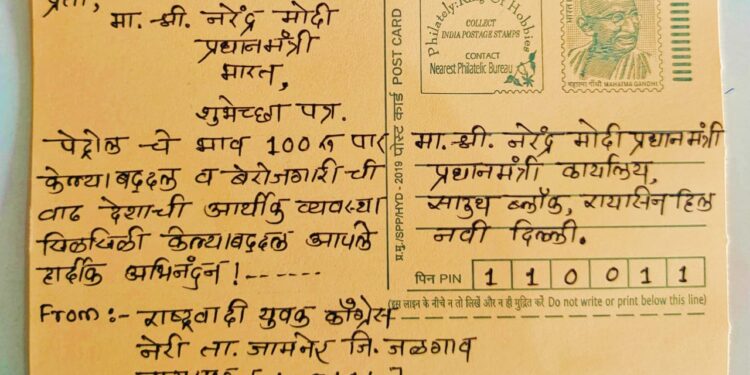 प्रती,
मा. श्री. नरेंद्र मोदी
प्रधानमंत्री
भारत,
शुभेच्छा पत्र.
पेट्रोल चे भाव 100 रु पार
केल्याबद्दल व बेरोजगारी ची
वाढ देशाची आर्थीक व्यवस्था
खिळखिळी केल्याबद्दल आपले
हार्दीक अभिनंदन !------
From:- राष्ट्रवादी युवक काँग्रेस
नेरी ता. जामनेर जि. जळगाव
Philately: King Of Hobbies
COLLECT
INDIA POSTAGE STAMPS
CONTACT
Nearest Philatelic Bureau
महात्मा गाँधी MAHATMA GANDHI
प्र.मु./SPPHYD - 2019 पोस्ट कार्ड POST CARD
मा. श्री. नरेंद्र मोदी प्रधानमंत्री
प्रधानमंत्री कार्यालय,
साउथ ब्लॉक, रायासिन हिल
नवी दिल्ली.
पिन PIN 1 1 0 0 1 1
(इस लाइन के नीचे न तो लिखें और न ही मुद्रित करें Do not write or print below this line)